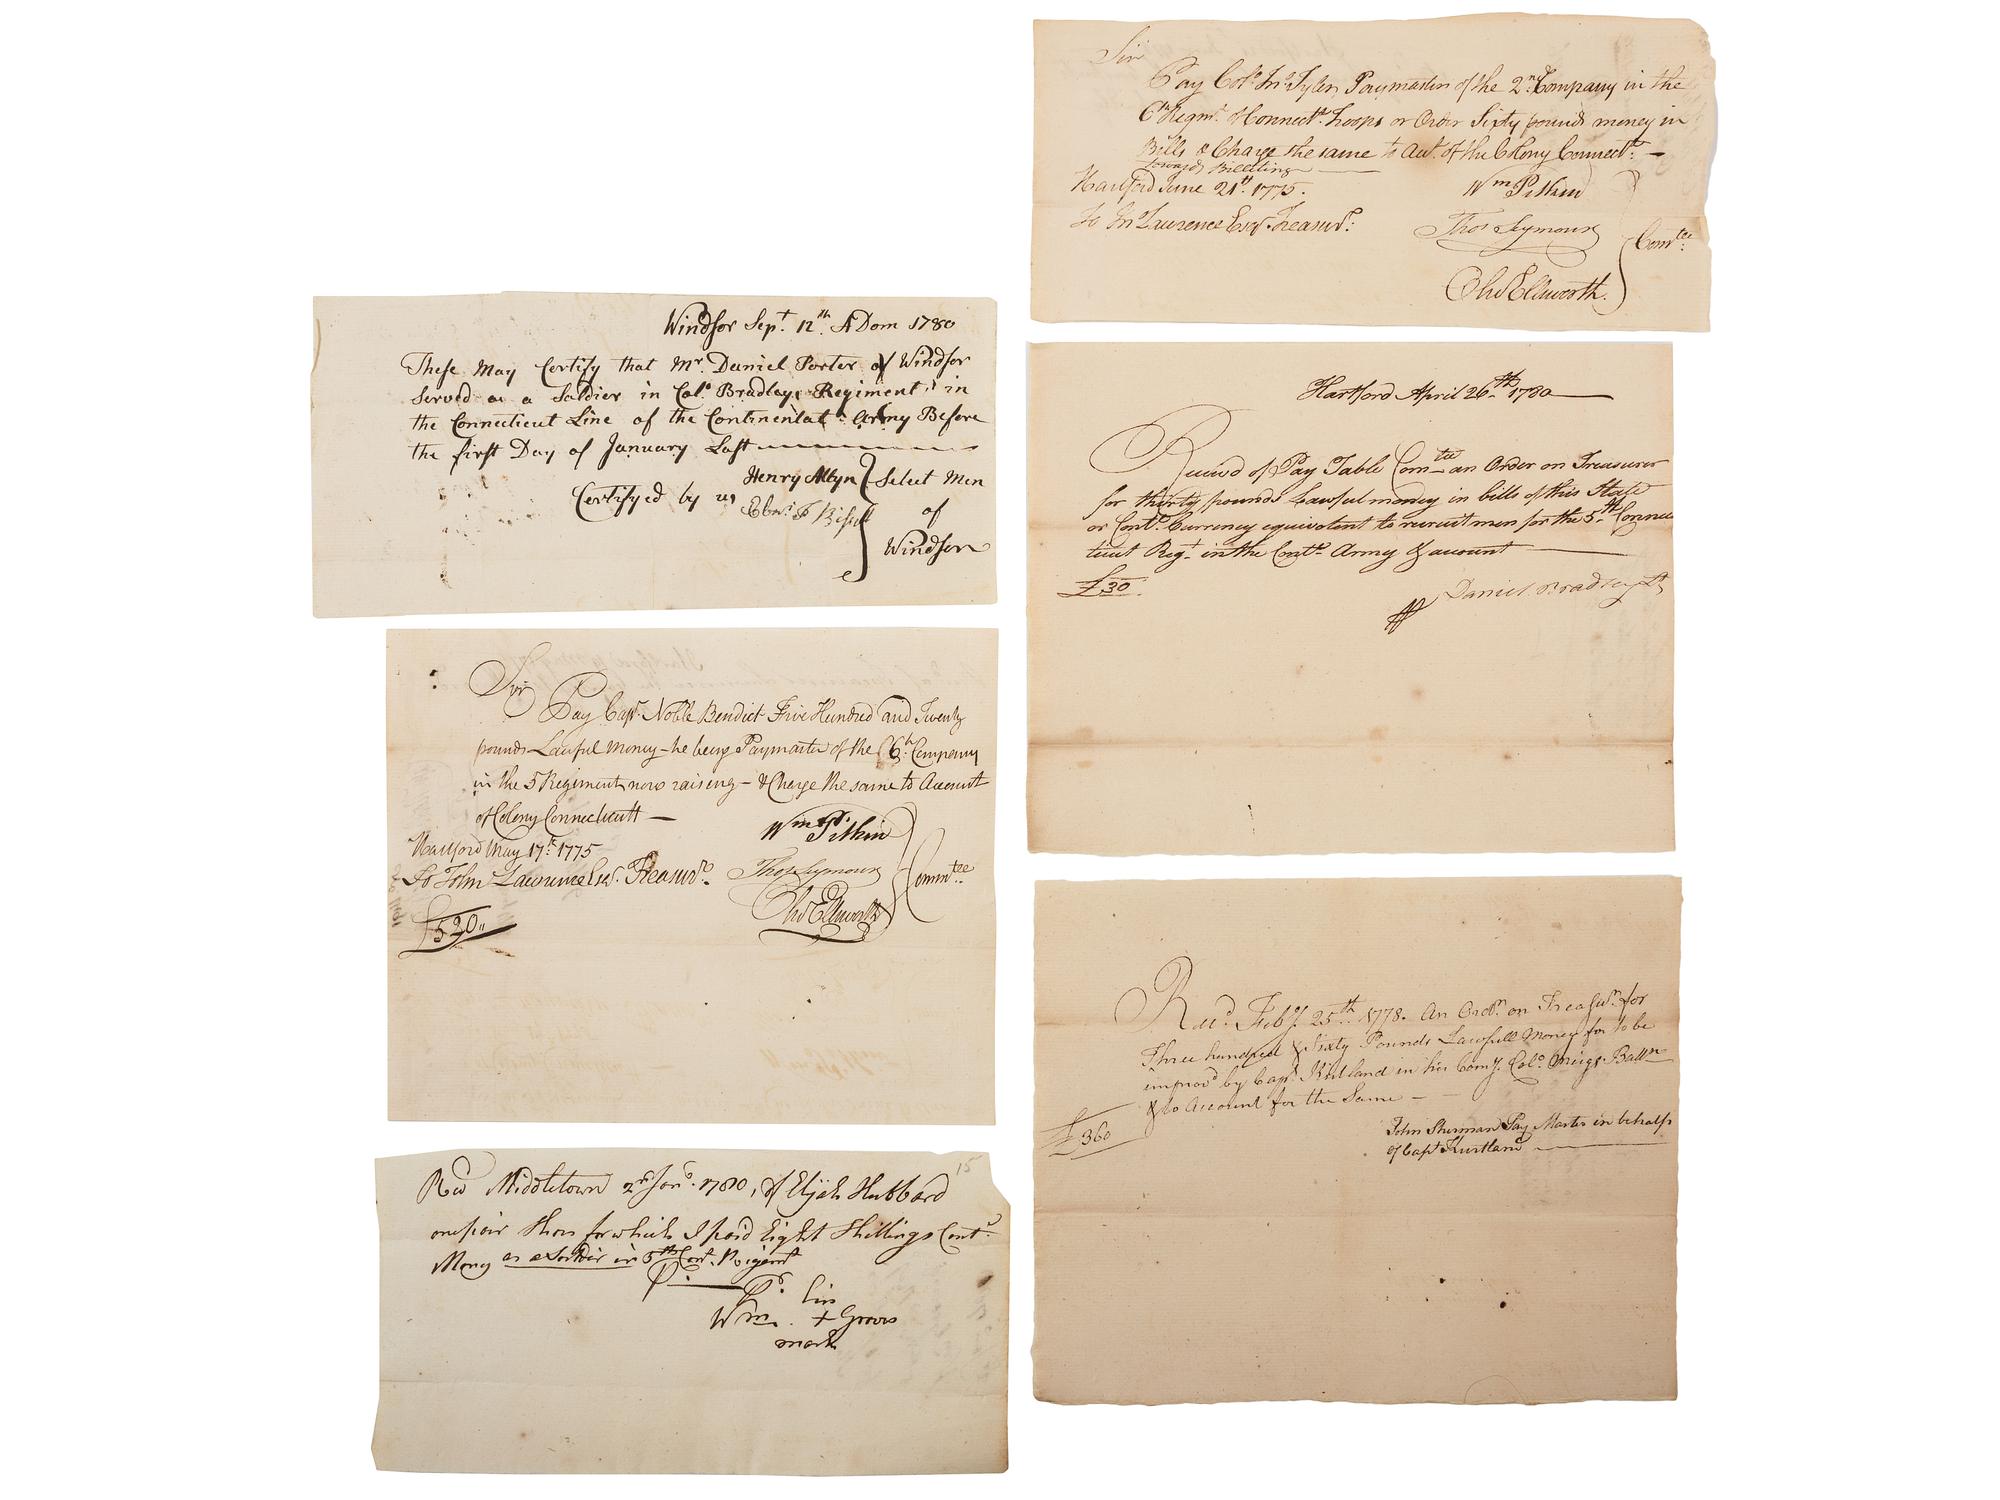 Windsor Sept 12th A Dom 1780
These May Certify that Mr. Daniel Porter of Windsor
Served as a Soldier in Colo. Bradleys Regiment, in
the Connecticut Line of the Continental Army Before
the first Day of January Last
Certifyed by us
Henry Allyn
Ebenr. F Bissell
Select Men
of
Windsor
Sir
Pay Capt. Noble Benedict Five Hundred and Twenty
pounds Lawful Money - he being Paymaster of the 6th. Company
in the 5 Regiment now raising - & Charge the same to Account
of Colony Connecticutt -
Hartford May 17th. 1775
To John Lawrence Esqr. Treasurr.
£520,,
Wm Pitkin
Thos Seymour
Ohr Ellsworth
Commtee
15
Recd Middletown 2d Janr. 1780, of Elijah Hubbard
one pair Shoes for which I paid Eight Shillings Cont.
Money as a Soldier in 5th Cont. Regimt
his
Wm. + Groves
mark
Sir
Pay Colo. Jno. Tyler Paymaster of the 2nd. Company in the
6th Regmt. of Connectt. troops or Order Sixty pounds money in
Bills & Charge the same to Acct. of the Colony Connectt: -
towards Billeting
Hartford June 21st. 1775.
To Jn Lawrence Esqr. Treasurr:
Wm Pitkin
Thos Seymour
Ohr Ellsworth.
Comtee:
Hartford April 26th 1780
Receivd of Pay Table Comtee an Order on Treasurer
for thirty pounds Lawful money in bills of this State
or Contl. Currency equivalent to recruit men for the 5th Connec
ticut Regt. in the Contl. Army & account
£30.
Daniel Bradley Lt
Recd. Feby. 25th. 1778. An Ordr. on Treasur. for
Three hundred & Sixty Pounds Lawfull Money for to be
improvd by Capt. Kirtland in his Comy. Colo. Meigs Battn
& to Account for the Same -
£360
John Sherman Pay Master in behalf
of Capt Kirtland